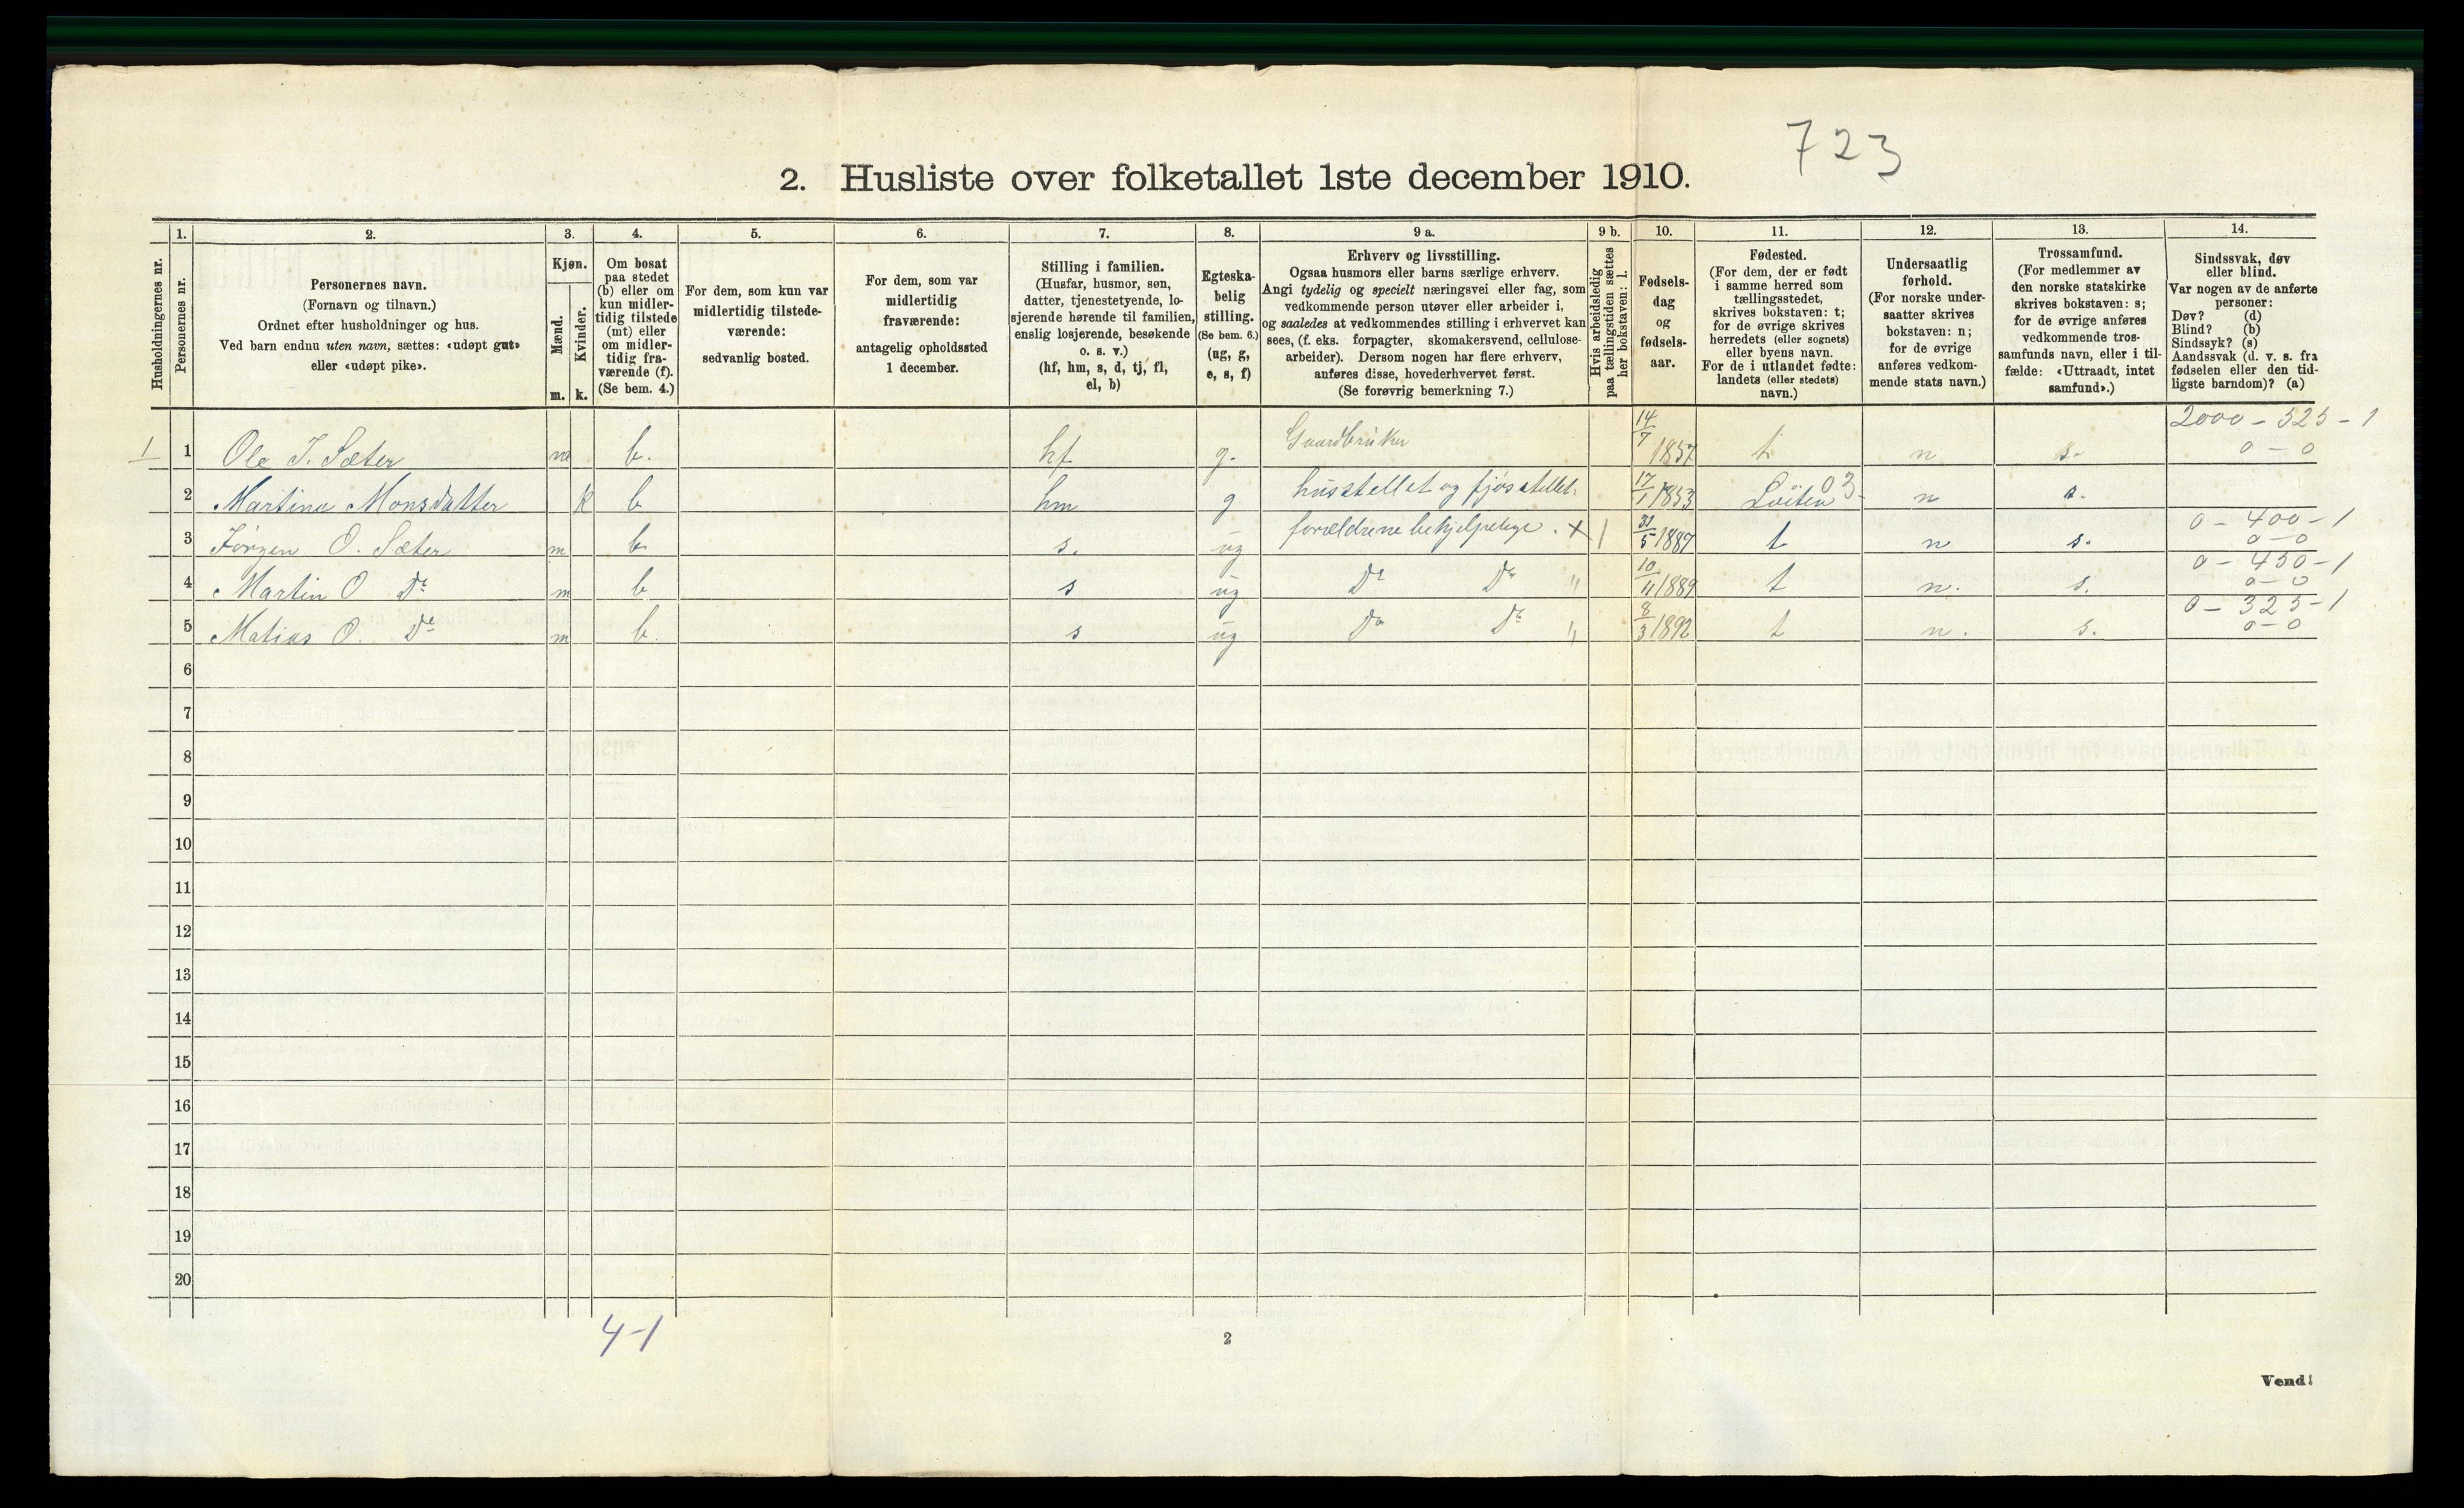 723
2. Husliste over folketallet 1ste december 1910.
Husholdningernes nr.
1.
Personernes nr.
2.
Personernes navn.
(Fornavn og tilnavn.)
Ordnet efter husholdninger og hus.
Ved barn endnu uten navn, sættes: «udøpt gut»
eller «udøpt pike».
3.
Kjøn.
Mænd.
Kvinder.
m. k.
4.
Om bosat
paa stedet
(b) eller om
kun midler-
tidig tilstede
(mt) eller
om midler-
tidig fra-
værende (f).
(Se bem. 4.)
5.
For dem, som kun var
midlertidig tilstede-
værende:
sedvanlig bosted.
6.
For dem, som var
midlertidig
fraværende:
antagelig opholdssted
1 december.
7.
Stilling i familien.
(Husfar, husmor, søn,
datter, tjenestetyende, lo-
sjerende hørende til familien,
enslig losjerende, besøkende
o. s. v.)
(hf, hm, s, d, tj, fl,
el, b)
8.
Egteska-
belig
stilling.
(Se bem. 6.)
(ug, g,
e, s, f)
9 a.
Erhverv og livsstilling.
Ogsaa husmors eller barns særlige erhverv.
Angi tydelig og specielt næringsvei eller fag, som
vedkommende person utøver eller arbeider i,
og saaledes at vedkommendes stilling i erhvervet kan
sees, (f. eks. forpagter, skomakersvend, cellulose-
arbeider). Dersom nogen har flere erhverv,
anføres disse, hovederhvervet først.
(Se forøvrig bemerkning 7.)
9 b.
Hvis arbeidsledig
paa tællingstiden sættes
her bokstaven: l.
10.
Fødsels-
dag
og
fødsels-
aar.
11.
Fødested.
(For dem, der er født
i samme herred som
tællingsstedet,
skrives bokstaven: t;
for de øvrige skrives
herredets (eller sognets)
eller byens navn.
For de i utlandet fødte:
landets (eller stedets)
navn.)
12.
Undersaatlig
forhold.
(For norske under-
saatter skrives
bokstaven: n;
for de øvrige
anføres vedkom-
mende stats navn.)
13.
Trossamfund.
(For medlemmer av
den norske statskirke
skrives bokstaven: s;
for de øvrige anføres
vedkommende tros-
samfunds navn, eller i til-
fælde: «Uttraadt, intet
samfund».)
14.
Sindssvak, døv
eller blind.
Var nogen av de anførte
personer:
Døv? (d)
Blind? (b)
Sindssyk? (s)
Aandssvak (d. v. s. fra
fødselen eller den tid-
ligste barndom)? (a)
1 1 Ole J. Sæter m b. hf g. Gaardbruker 14/7 1857 t n s. 2000 - 525 - 1
0 - 0
2 Martina Monsdatter k b hm g husstellet og fjøsstellet. 17/1 1853 Løiten 03 n s.
3 Jørgen O. Sæter m b. s. ug forældrene behjelpelige. x 1 31/5 1887 t n s. 0 - 400 - 1
0 - 0
4 Martin O Do m b s ug Do Do " 10/11 1889 t n. s. 0 - 450 - 1
0 - 0
5 Matias O. Do m b. s ug Do Do " 8/3 1892 t n. s. 0 - 325 - 1
0 - 0
6
7
8
9
10
11
12
13
14
15
16
17
18
19
20
4-1
2
Vend!